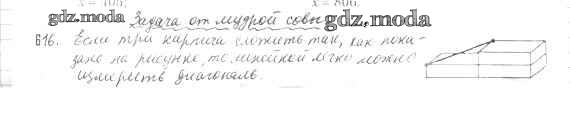 x = 105; x = 800.
gdz.moda Задача от мудрой совы gdz.moda
616. Если три кирпича сложить так, как пока-
зано на рисунке, то линейкой легко можно
измерить диагональ.